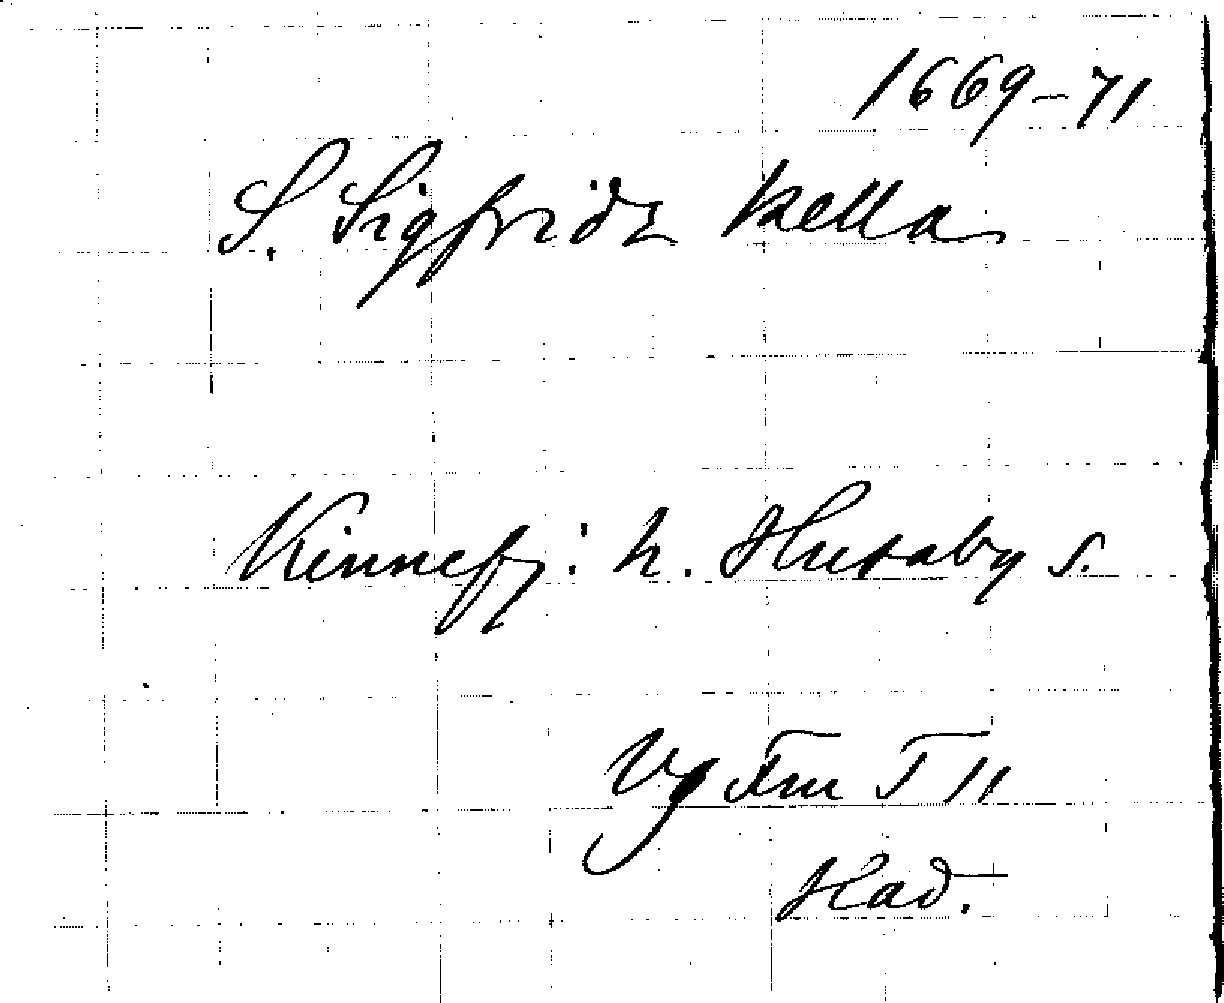 1669-71
S. Sigfrids kella
Kinnefj: h. Husaby s.
Vg Fm T II
Had.